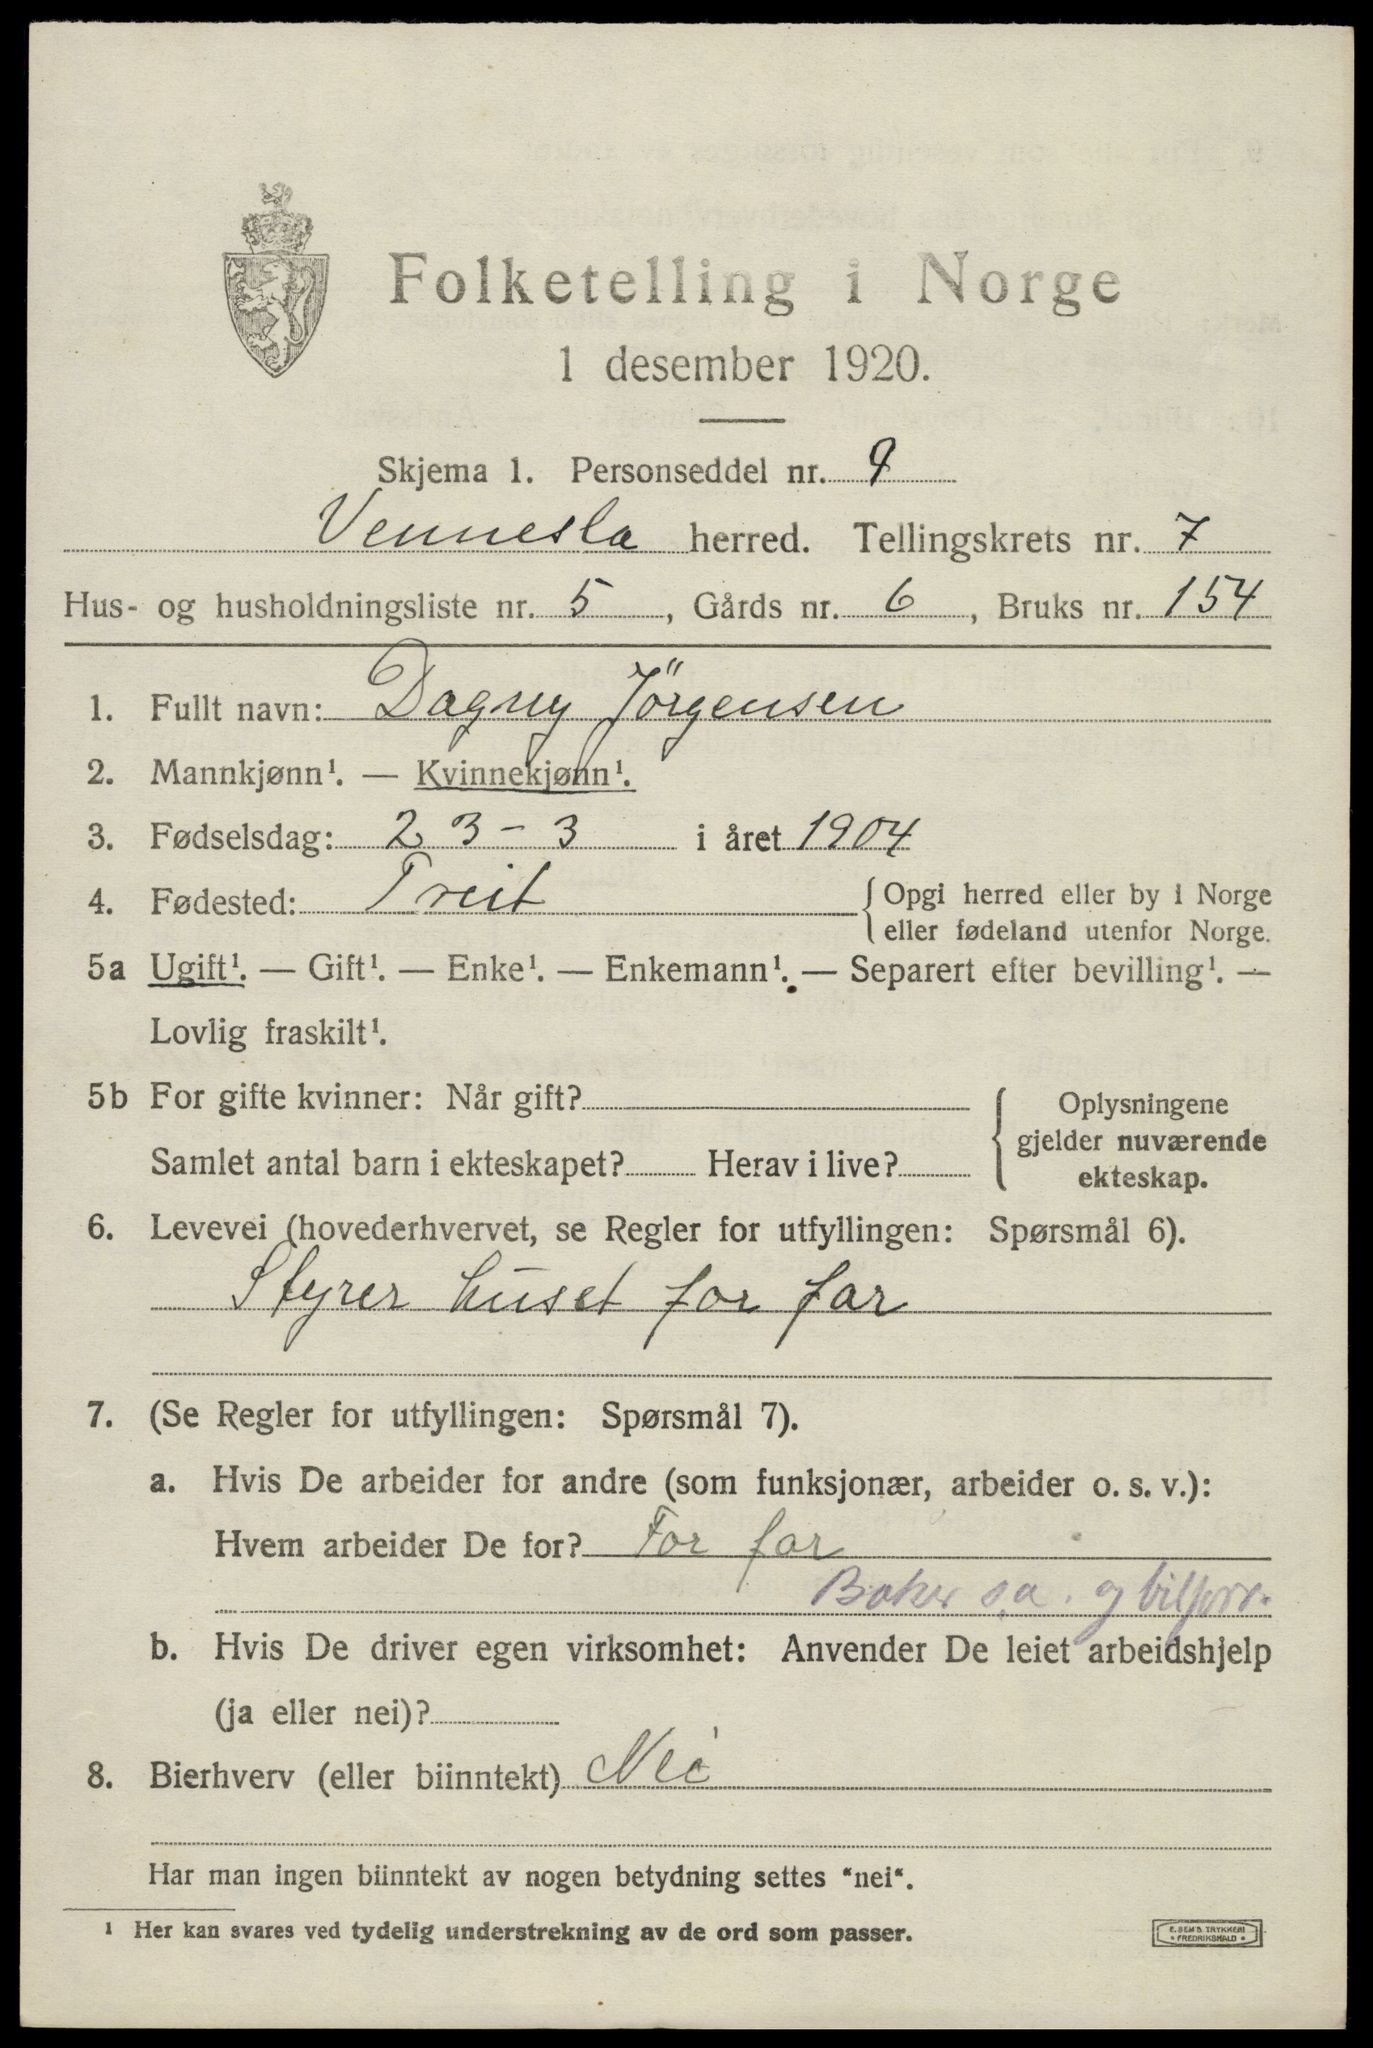 Folketelling i Norge
1 desember 1920.
Skjema 1. Personseddel nr. 9
Vennesla herred. Tellingskrets nr. 7
Hus- og husholdningsliste nr. 5, Gårds nr. 6, Bruks nr. 154
1. Fullt navn: Dagny Jörgensen
2. Mannkjønn¹. — Kvinnekjønn¹.
3. Fødselsdag: 23-3 i året 1904
4. Fødested: Treit { Opgi herred eller by i Norge
eller fødeland utenfor Norge.
5a Ugift¹. — Gift¹. — Enke¹. — Enkemann¹. — Separert efter bevilling¹. —
Lovlig fraskilt¹.
5b For gifte kvinner: Når gift?
Samlet antal barn i ekteskapet? Herav i live?
{ Oplysningene
gjelder nuværende
ekteskap.
6. Levevei (hovederhvervet, se Regler for utfyllingen: Spørsmål 6).
Styrer huset for far
7. (Se Regler for utfyllingen: Spørsmål 7).
a. Hvis De arbeider for andre (som funksjonær, arbeider o. s. v.):
Hvem arbeider De for? For far
Baker s.a. og bilforr.
b. Hvis De driver egen virksomhet: Anvender De leiet arbeidshjelp
(ja eller nei)?
8. Bierhverv (eller biinntekt) Nei
Har man ingen biinntekt av nogen betydning settes "nei".
¹ Her kan svares ved tydelig understrekning av de ord som passer.
E. SEM'S TRYKKERI
FREDRIKSHALD